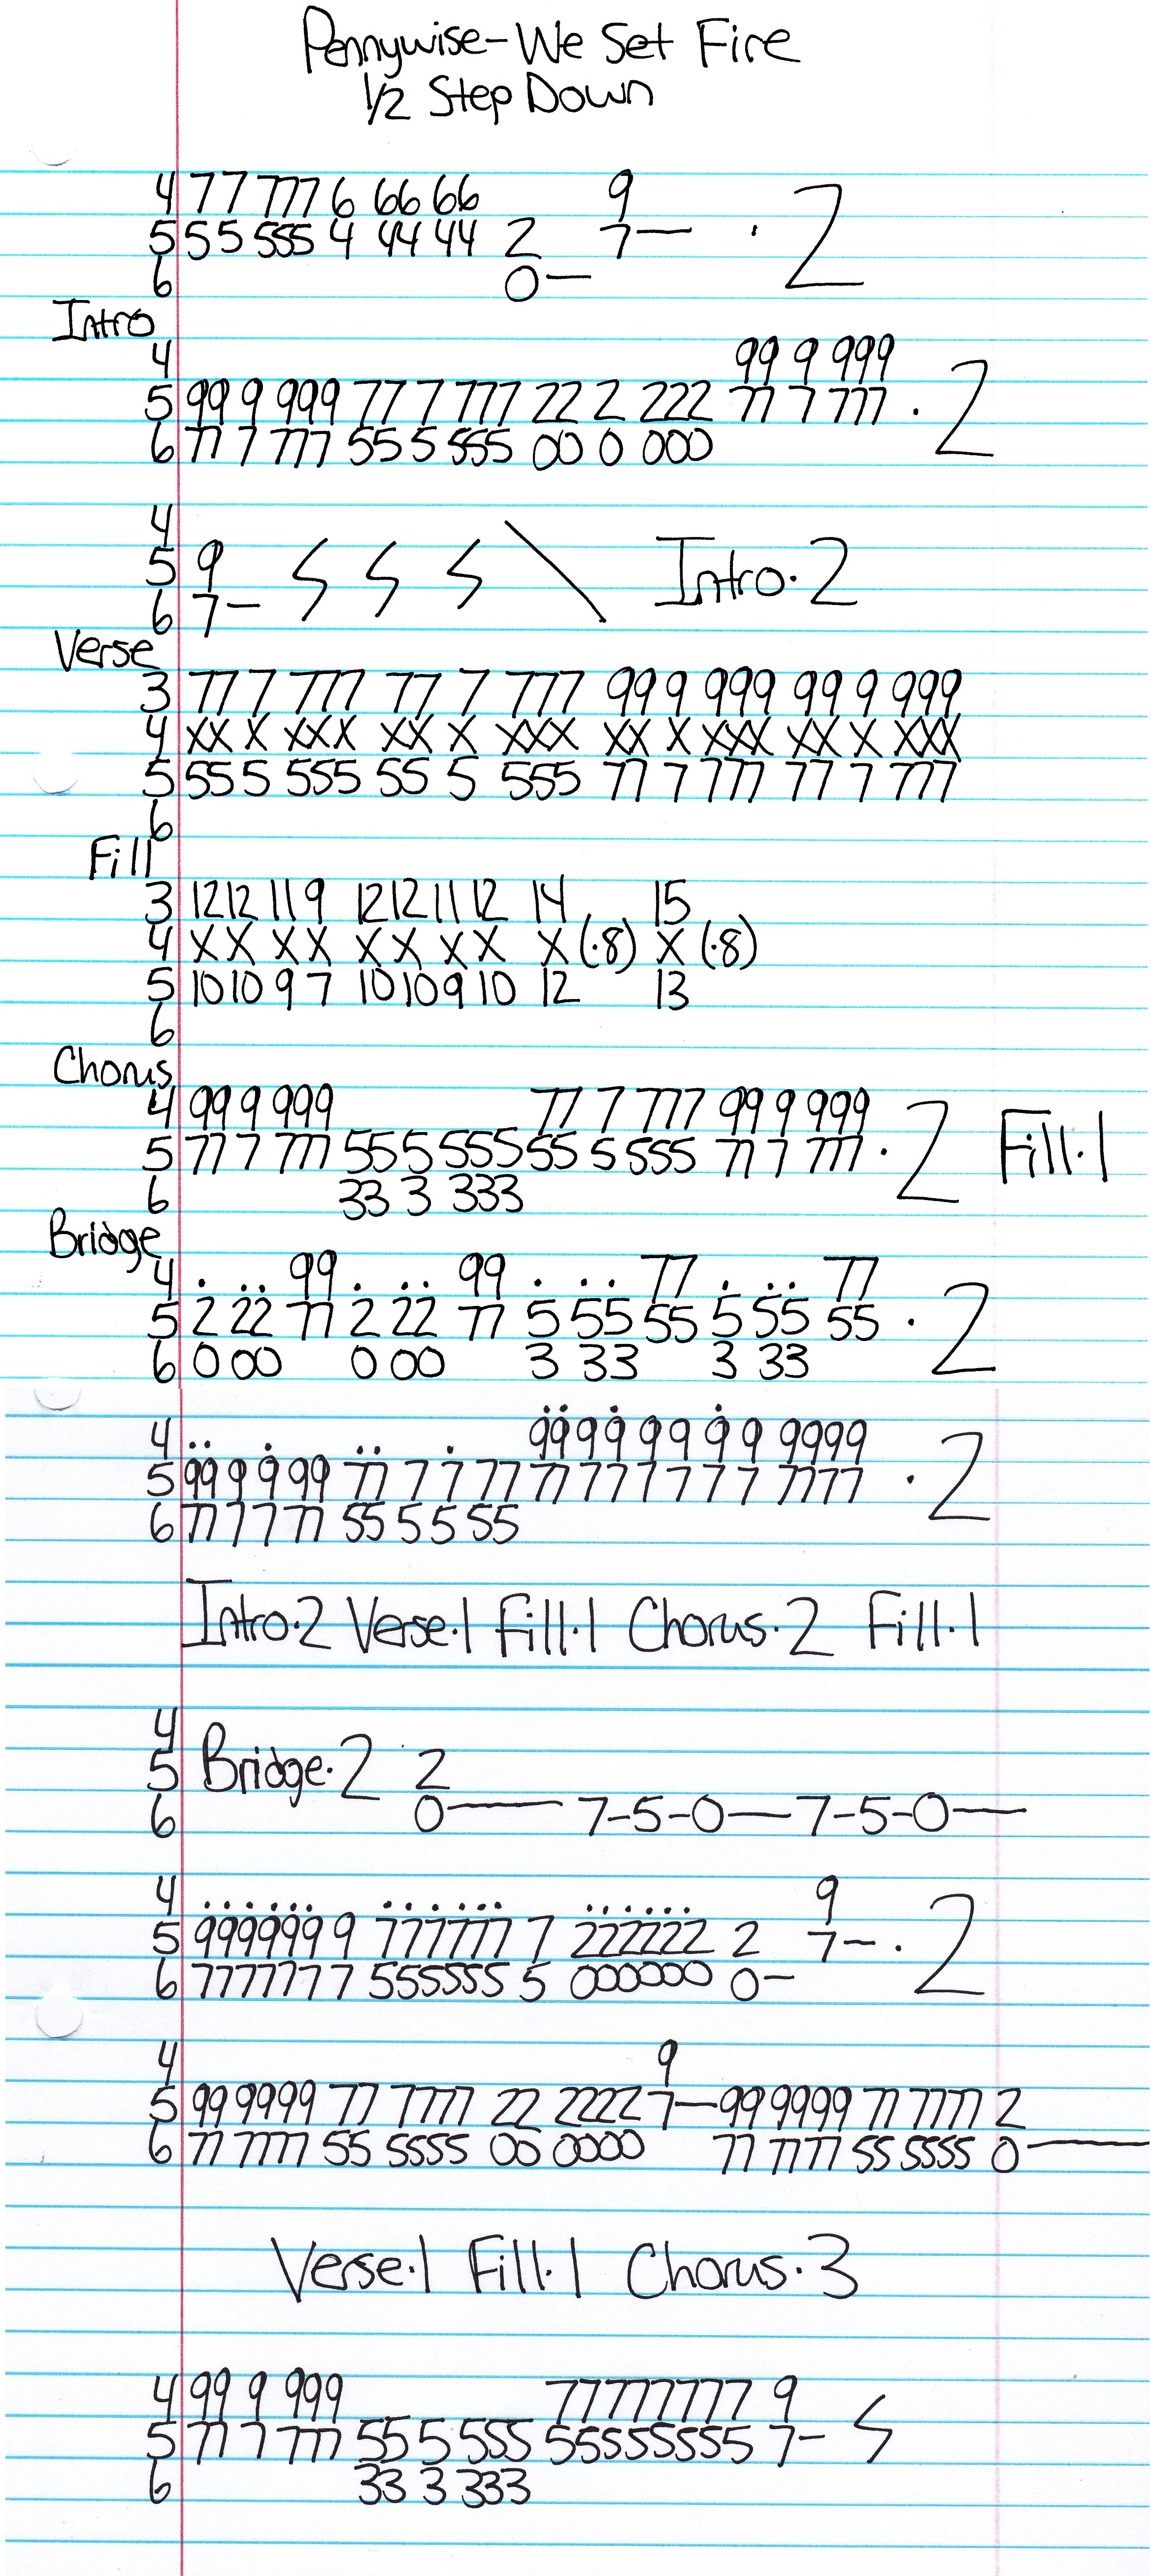 Pennywise-We Set Fire
1/2 Step Down
4 77 777 6 66 66 9
5 55 555 4 44 44 2 7— · 2
6 0—
Intro
4 99 9 999
5 99 9 999 77 7 777 22 2 222 77 7 777 · 2
6 77 7 777 55 5 555 00 0 000
4
5 9 Intro·2
6 7-
Verse
3 77 7 777 77 7 777 99 9 999 99 9 999
4 XX X XXX XX X XXX XX X XXX XX X XXX
5 55 5 555 55 5 555 77 7 777 77 7 777
6
Fill
3 12 12 11 9 12 12 11 12 14 15
4 X X X X X X X X X (·8) X (·8)
5 10 10 9 7 10 10 9 10 12 13
6
Chorus
4 99 9 999 77 7 777 99 9 999
5 77 7 777 55 5 555 55 5 555 77 7 777 · 2 Fill·1
6 33 3 333
Bridge
4 . .. 99 . .. 99 . .. 77 . .. 77
5 2 22 77 2 22 77 5 55 55 5 55 55 · 2
6 0 00 0 00 3 33 3 33
4 99 9 9 9 9 9 9 9999
5 99 9 9 99 77 7 7 77 77 7 7 7 7 7 7 7777 · 2
6 77 7 7 77 55 5 5 55
Intro·2 Verse·1 Fill·1 Chorus·2 Fill·1
4
5 Bridge·2 2
6 0—— 7-5-0—7-5-0—
4 ...... ...... ...... 9
5 999999 9 777777 7 222222 2 7-· 2
6 777777 7 555555 5 000000 0-
4 9
5 99 9999 77 7777 22 2222 7—99 9999 77 7777 2
6 77 7777 55 5555 00 0000 77 7777 55 5555 0——
Verse·1 Fill·1 Chorus·3
4 99 9 999 77777777 9
5 77 7 777 55 5 555 55555555 7-
6 33 3 333